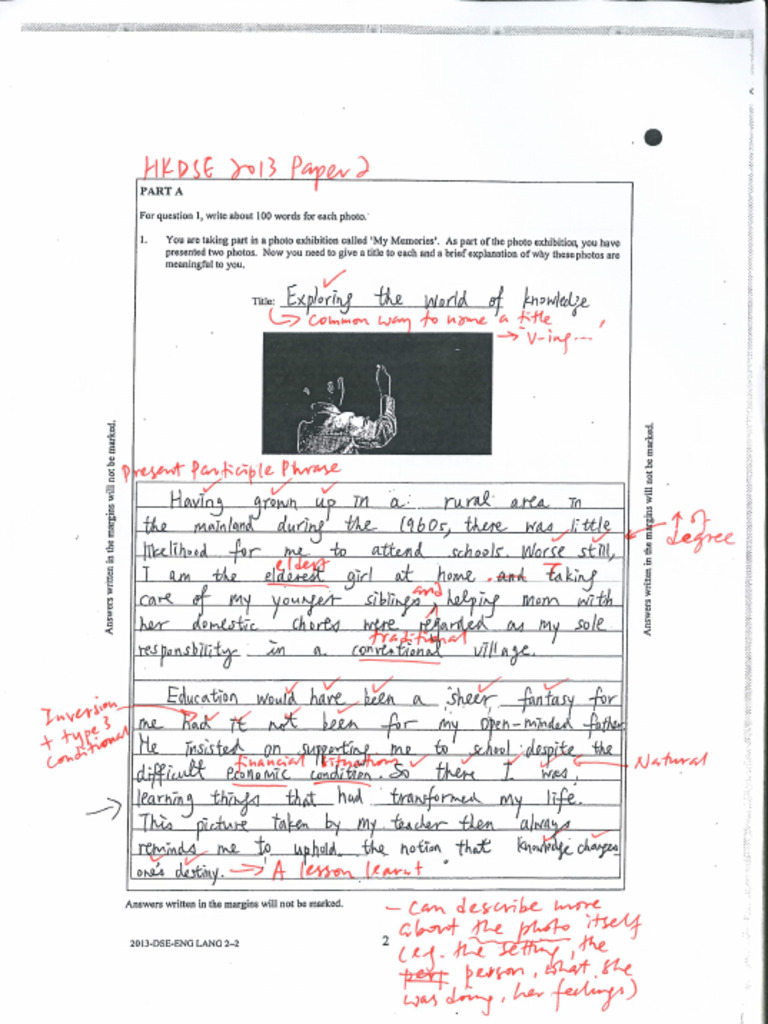 HKDSE 2013 Paper 2
PART A
For question 1, write about 100 words for each photo.
1. You are taking part in a photo exhibition called 'My Memories'. As part of the photo exhibition, you have
presented two photos. Now you need to give a title to each and a brief explanation of why these photos are
meaningful to you.
Title: Exploring the world of knowledge
common way to name a title
→ "V-ing...."
Answers written in the margins will not be marked.
Answers written in the margins will not be marked.
Present Participle Phrase
Having grown up in a rural area in
the mainland during the 1960s, there was little
likelihood for me to attend schools. Worse still,
↑ of
degree
eldest
I am the elderest girl at home. and Taking
and
care of my younger siblings, helping mom with
her domestic chores were regarded as my sole
traditional
responsbility in a conventional village.
Education would have been a sheer fantasy for
Inversion
+ type 3
conditional
me had it not been for my open-minded father.
He insisted on supporting me to school despite the
financial situation
difficult economic condition. So there I was,
Natural
learning things that had transformed my life.
This picture taken by my teacher then always
reminds me to uphold the notion that knowledge changes
one's destiny. → A lesson learnt
Answers written in the margins will not be marked.
- can describe more
about the photo itself
(eg. the setting, the
pert person, what she
was doing, her feelings)
2013-DSE-ENG LANG 2-2
2